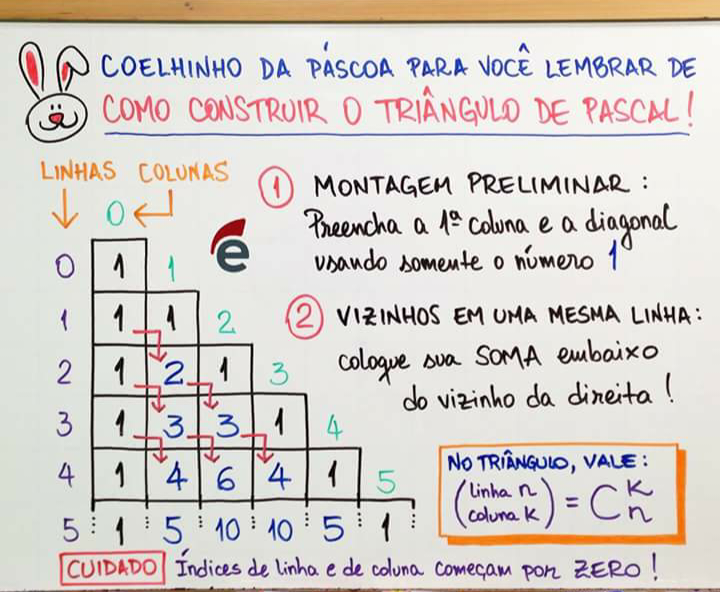 COELHINHO DA PÁSCOA PARA VOCÊ LEMBRAR DE
COMO CONSTRUIR O TRIÂNGULO DE PASCAL!
LINHAS COLUNAS
0
0 1 1
1 1 1 2
2 1 2 1 3
3 1 3 3 1 4
4 1 4 6 4 1 5
5 1 5 10 10 5 1
e
1 MONTAGEM PRELIMINAR:
Preencha a 1ª coluna e a diagonal
usando somente o número 1
2 VIZINHOS EM UMA MESMA LINHA:
coloque sua SOMA embaixo
do vizinho da direita!
NO TRIÂNGULO, VALE:
(linha n
coluna k) = C k n
CUIDADO Índices de linha e de coluna começam por ZERO!